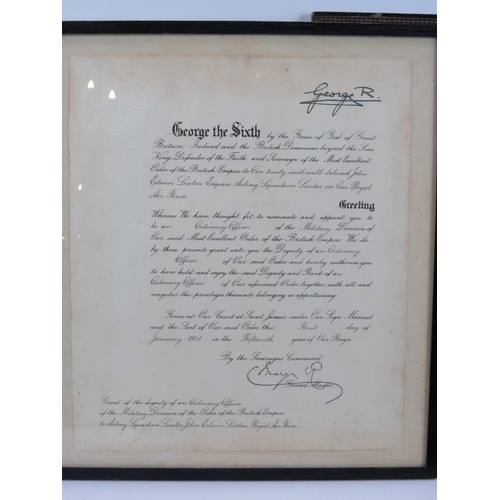 George R.
George the Sixth by the Grace of God of Great
Britain, Ireland and the British Dominions beyond the Seas
King, Defender of the Faith and Sovereign of the Most Excellent
Order of the British Empire to Our trusty and well beloved John
Edwin Esquire Acting Squadron Leader in Our Royal
Air Force
Greeting
Whereas We have thought fit to nominate and appoint you to
be an Ordinary Officer of the Military Division of
Our said Most Excellent Order of the British Empire We do
by these presents grant unto you the Dignity of an Ordinary
Officer of Our said Order and hereby authorise you
to have hold and enjoy the said Dignity and Rank of an
Ordinary Officer of Our aforesaid Order together with all and
singular the privileges thereunto belonging or appertaining
Given at Our Court at Saint James's under Our Sign Manual
and the Seal of Our said Order this First day of
January 1951 in the Fifteenth year of Our Reign
By the Sovereign's Command
Grand Master
Grant of the dignity of an Ordinary Officer
of the Military Division of the Order of the British Empire
to Acting Squadron Leader John Edwin Royal Air Force